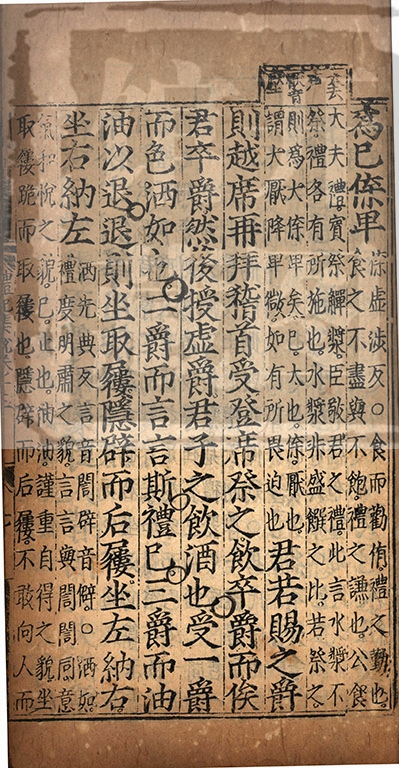 爲已傺卑
傺虛涉反○食而勸侑禮之勤也
食之不盡與不飽禮之謙也公食
大夫禮賓祭觶漿臣敬君之禮此言水漿不
祭禮各有所施也水漿非盛饌之比若祭之
則爲大傺卑矣已太也傺厭也
謂大厭降卑微如有所畏迫也
君若賜之爵
則越席再拜稽首受登席祭之飲卒爵而俟
君卒爵然後授虛爵君子之飲酒也受一爵
而色洒如也二爵而言言斯禮已三爵而油
油以退退則坐取屨隱辟而后屨坐左納右
坐右納左
洒先典反言音誾辟音僻○洒如
禮度明肅之貌言言與誾誾同意
氣和悅之貌已止也油油謹重自得之貌坐
取屨跪而取屨也隱辟而后屨不敢向人而